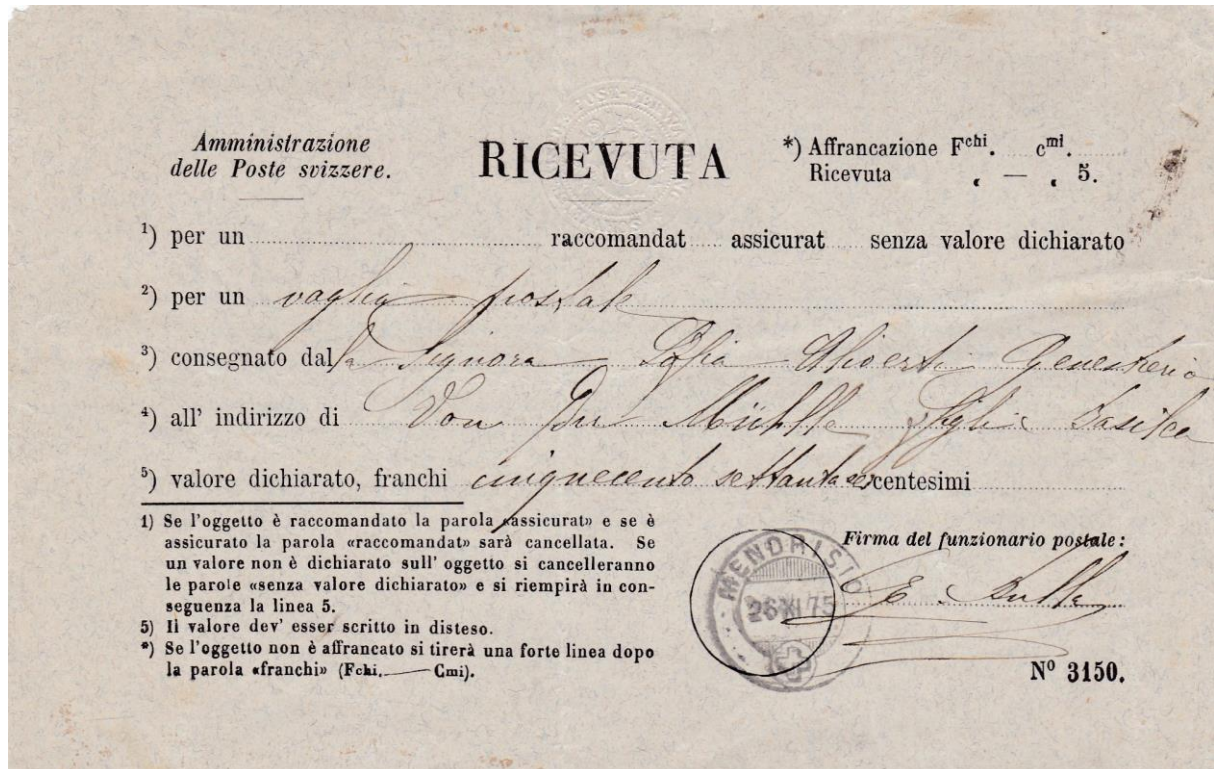 Amministrazione
delle Poste svizzere.
RICEVUTA
*) Affrancazione Fchi. cmi.
Ricevuta „ — „ 5.
1) per un raccomandat assicurat senza valore dichiarato
2) per un vaglia postale
3) consegnato dalla Signora Sofia
4) all' indirizzo di Von Der Mühll Figli Basilea
5) valore dichiarato, franchi cinquecento settanta centesimi
1) Se l'oggetto è raccomandato la parola «assicurat» e se è
assicurato la parola «raccomandat» sarà cancellata. Se
un valore non è dichiarato sull' oggetto si cancelleranno
le parole «senza valore dichiarato» e si riempirà in con-
seguenza la linea 5.
5) Il valore dev' esser scritto in disteso.
*) Se l'oggetto non è affrancato si tirerà una forte linea dopo
la parola «franchi» (Fchi.—Cmi).
Firma del funzionario postale:
MENDRISIO
26 XI 75
Nº 3150.